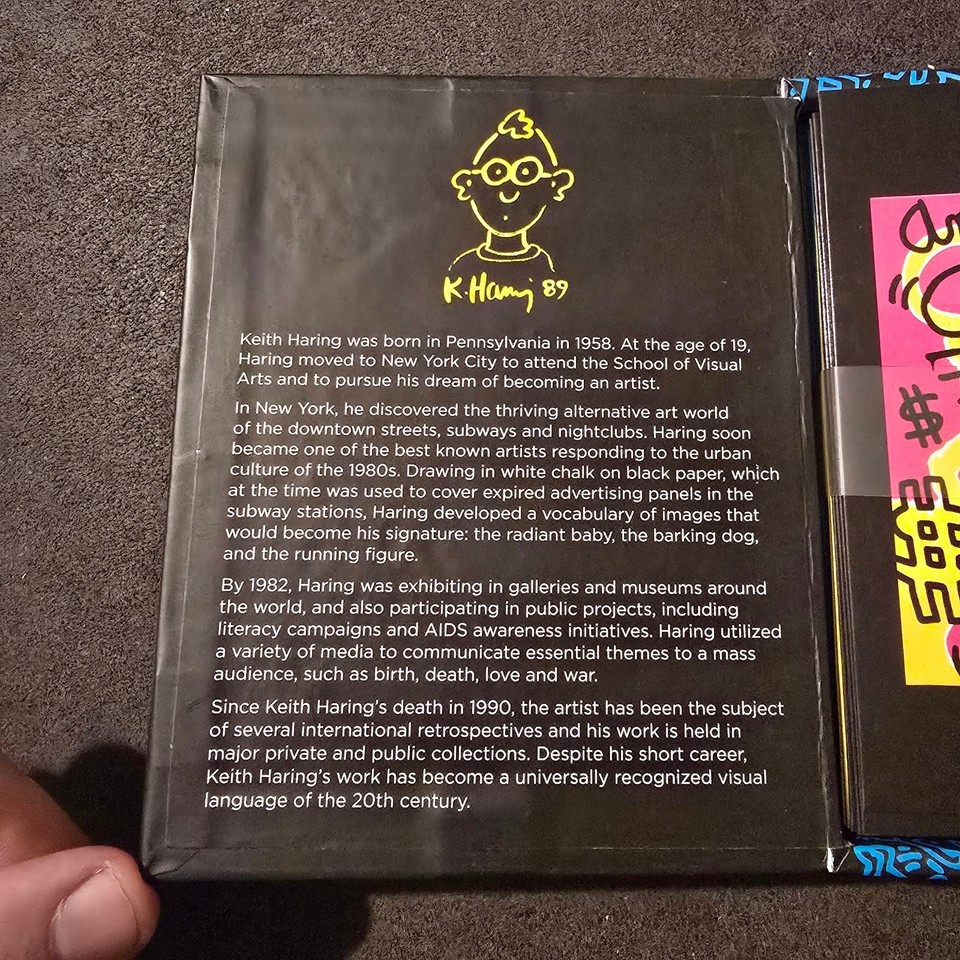 K. Haring 89
Keith Haring was born in Pennsylvania in 1958. At the age of 19,
Haring moved to New York City to attend the School of Visual
Arts and to pursue his dream of becoming an artist.
In New York, he discovered the thriving alternative art world
of the downtown streets, subways and nightclubs. Haring soon
became one of the best known artists responding to the urban
culture of the 1980s. Drawing in white chalk on black paper, which
at the time was used to cover expired advertising panels in the
subway stations, Haring developed a vocabulary of images that
would become his signature: the radiant baby, the barking dog,
and the running figure.
By 1982, Haring was exhibiting in galleries and museums around
the world, and also participating in public projects, including
literacy campaigns and AIDS awareness initiatives. Haring utilized
a variety of media to communicate essential themes to a mass
audience, such as birth, death, love and war.
Since Keith Haring's death in 1990, the artist has been the subject
of several international retrospectives and his work is held in
major private and public collections. Despite his short career,
Keith Haring's work has become a universally recognized visual
language of the 20th century.
$